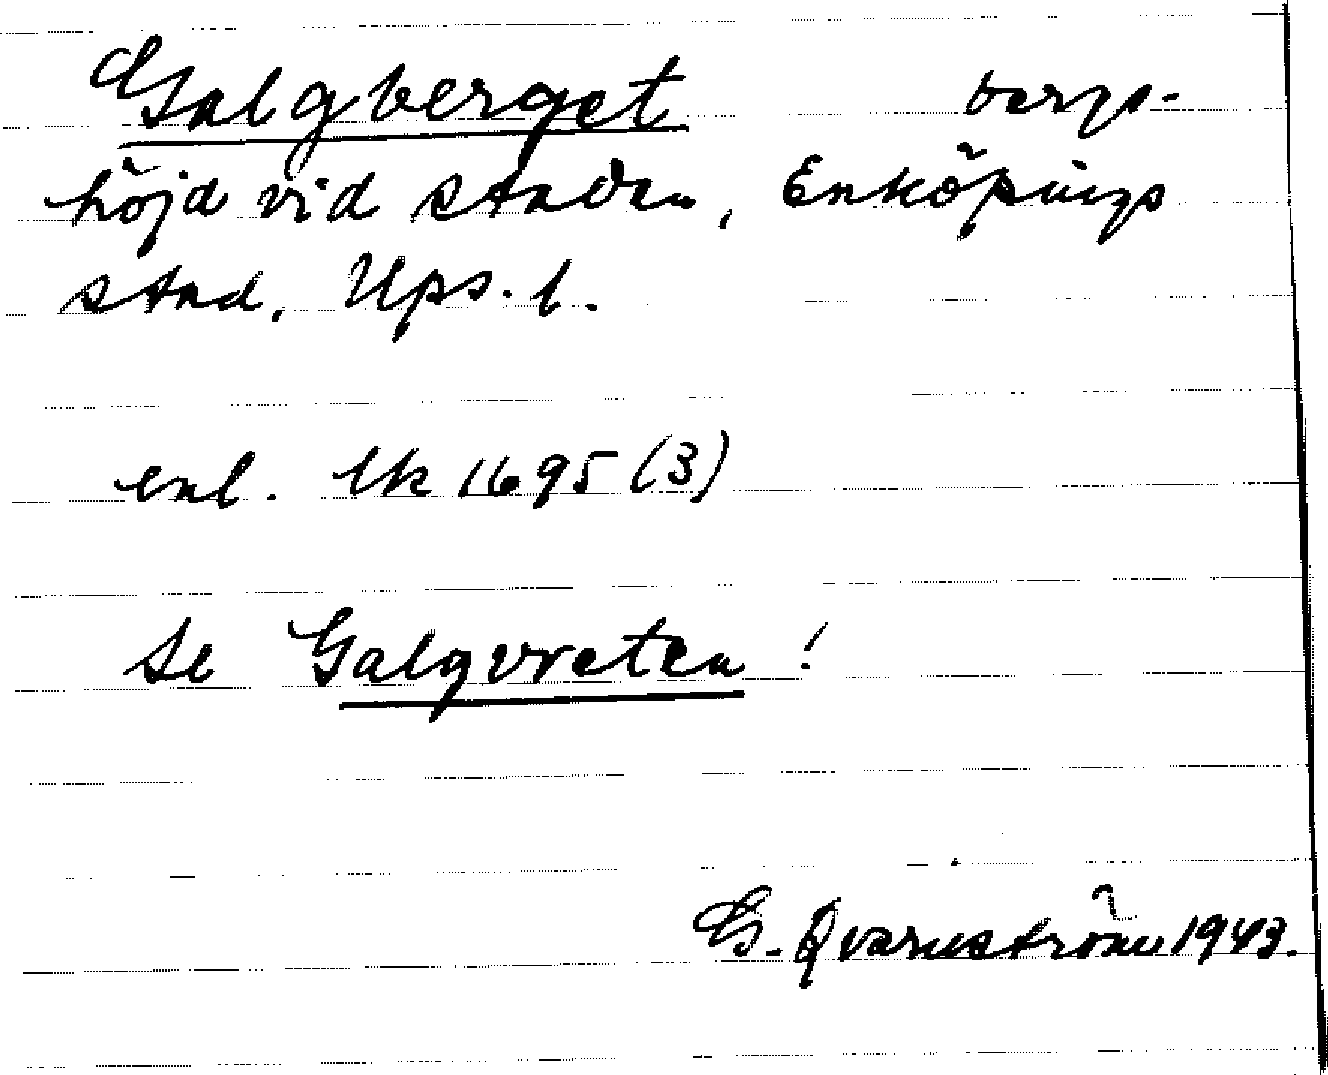 Galgberget bergs-
höjd vid staden, Enköpings
stad, Ups. l.
enl. lk 1695 (3)
Se Galgvreten!
G. Qvarnström 1943.